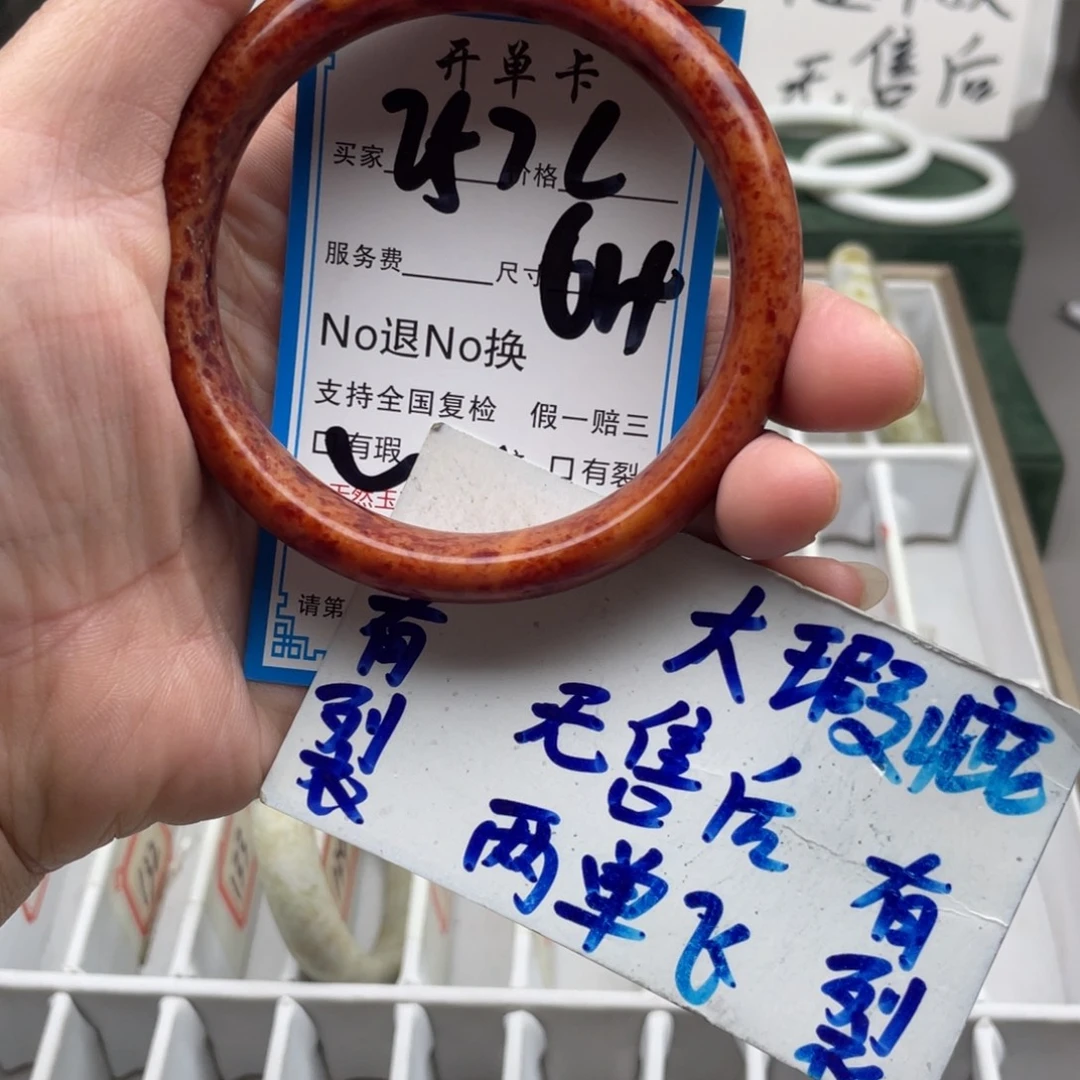 开单卡
买家 价格
服务费 尺寸 64
No退No换
支持全国复检 假一赔三
口有瑕 口有裂
天然玉
请第
无售后
大瑕疵
无售后
两单飞
有裂
有裂